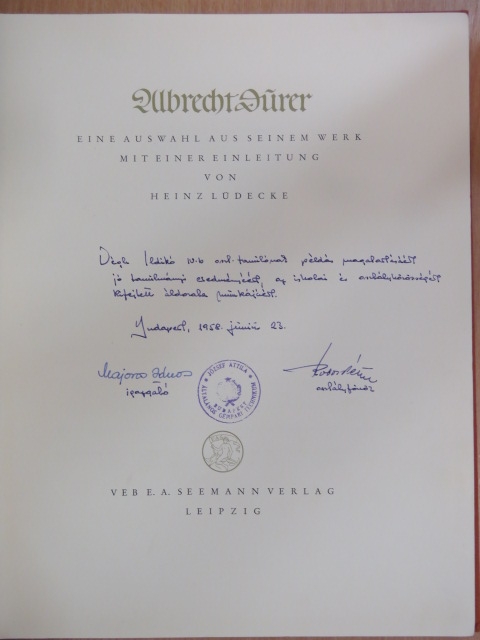 Albrecht Dürer
EINE AUSWAHL AUS SEINEM WERK
MIT EINER EINLEITUNG
VON
HEINZ LÜDECKE
Dégi Ildikó IV.b oszt. tanulónak példás magatartásáért
jó tanulmányi eredményéért, az iskolai és osztályközösségért
kifejtett áldozatos munkájáért.
Budapest, 1968. június 23.
Majoros János
igazgató
osztályfőnök
JÓZSEF ATTILA
ÁLTALÁNOS GÉPIPARI TECHNIKUM
BUDAPEST
VEB E. A. SEEMANN VERLAG
LEIPZIG